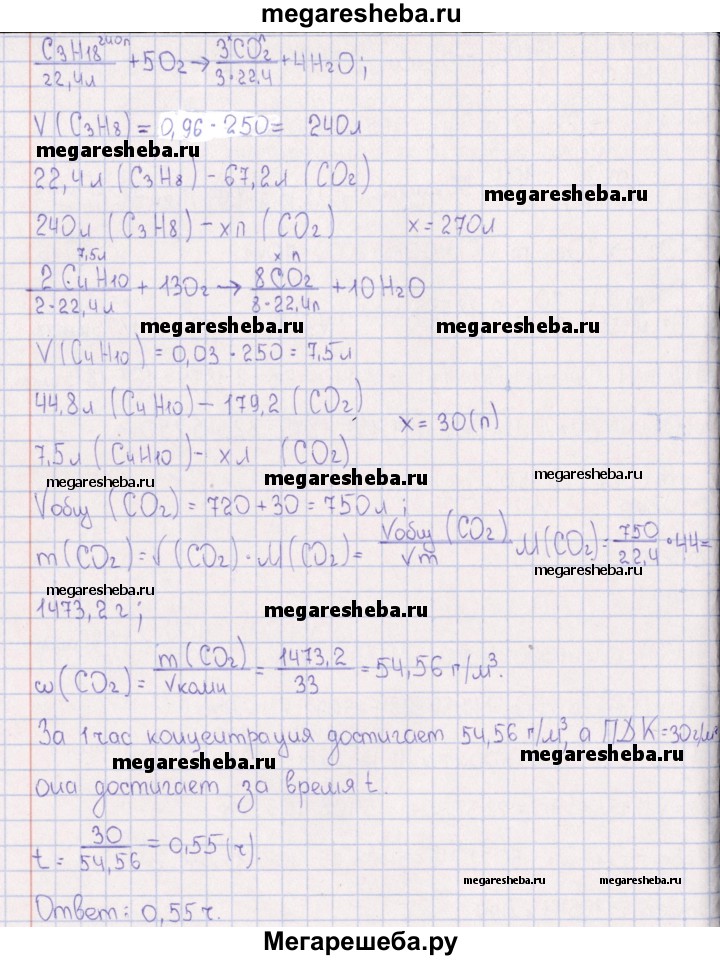 megaresheba.ru
C3H18 240л/22,4л + 5O2 → x 3CO2/3·22,4 + 4H2O;
V(C3H8) = 0,96·250 = 240л
megaresheba.ru
22,4л (C3H8) – 67,2л (CO2)
megaresheba.ru
240л (C3H8) – xл (CO2) x = 270л
7,5л x л
2C4H10/2·22,4л + 13O2 → 8CO2/8·22,4л + 10H2O
megaresheba.ru megaresheba.ru
V(C4H10) = 0,03·250 = 7,5л
44,8л (C4H10) – 179,2 (CO2)
megaresheba.ru
x = 30(л)
7,5л (C4H10) – xл (CO2)
megaresheba.ru megaresheba.ru
Vобщ (CO2) = 720 + 30 = 750л;
m(CO2) = √(CO2)·M(CO2) = Vобщ (CO2)/Vm · M(CO2) = 750/22,4 · 44 =
megaresheba.ru
megaresheba.ru
1473,2г;
megaresheba.ru
ω(CO2) = m(CO2)/Vкомн = 1473,2/33 = 54,56 г/м³.
За 1 час концентрация достигает 54,56 г/м³, а ПДК = 30г/м³
megaresheba.ru megaresheba.ru
она достигает за время t.
t = 30/54,56 = 0,55 (ч).
megaresheba.ru megaresheba.ru
Ответ: 0,55ч.
Мегарешеба.ру